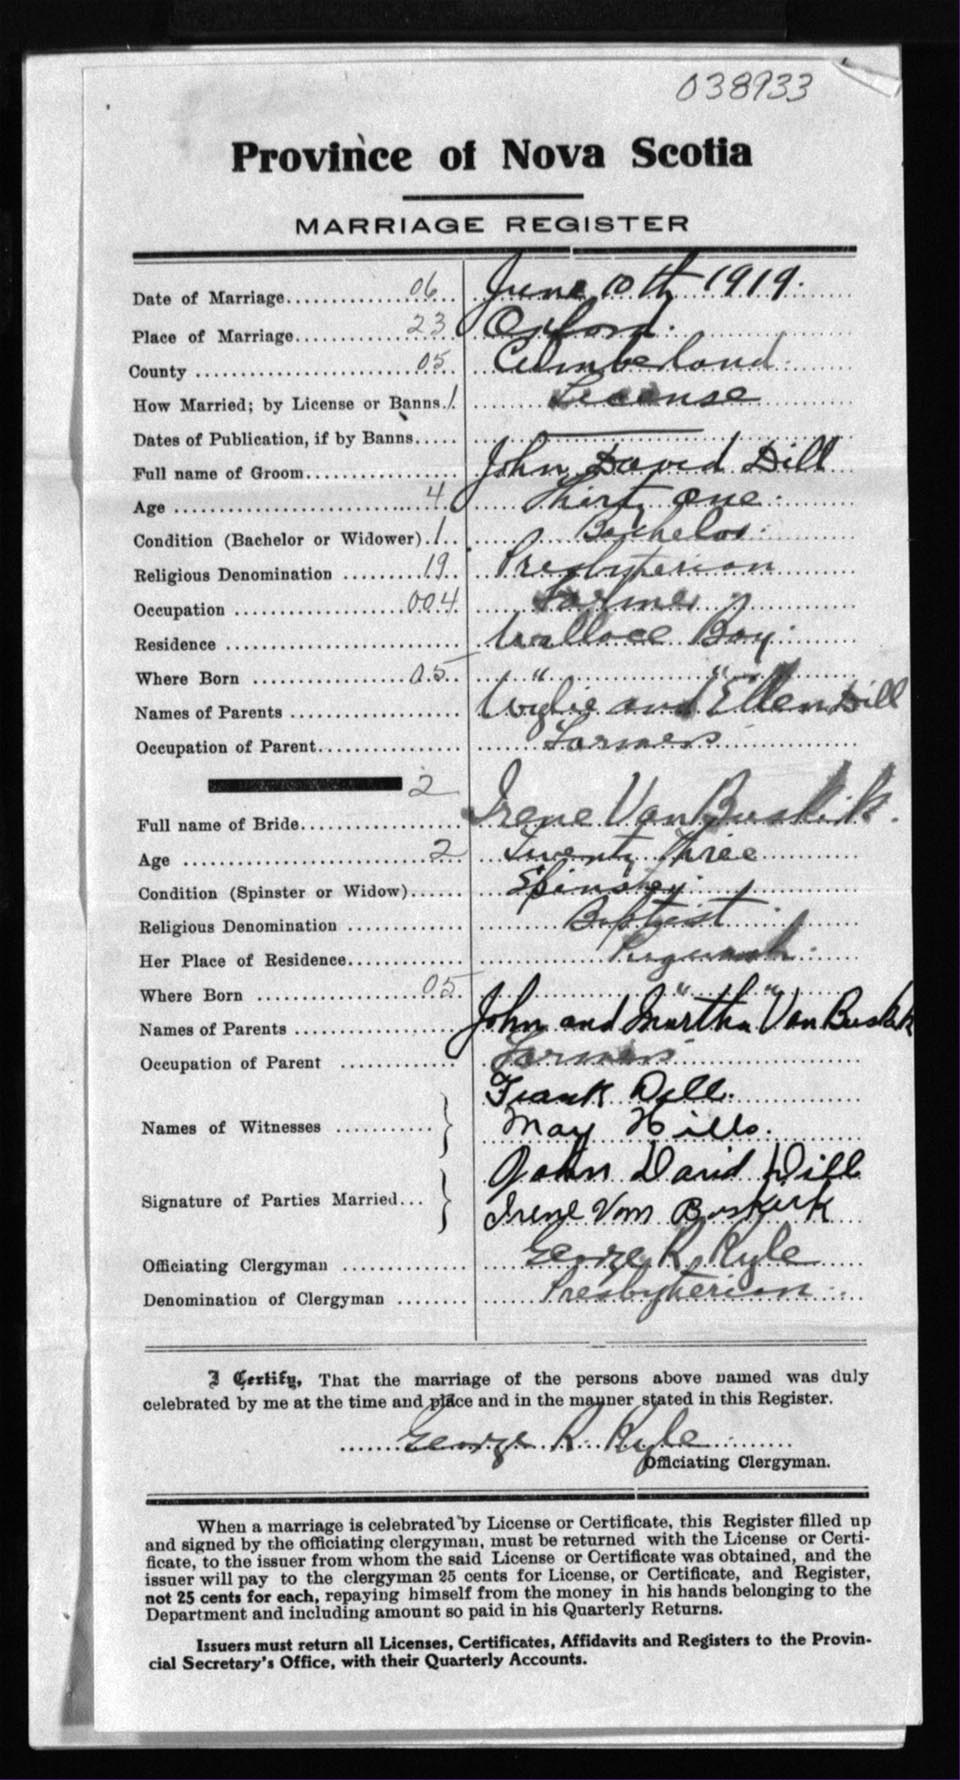 038933
Province of Nova Scotia
MARRIAGE REGISTER
Date of Marriage 06 June 10th 1919.
Place of Marriage 23 Oxford.
County 05 Cumberland
How Married; by License or Banns 1 License
Dates of Publication, if by Banns
Full name of Groom John David Dill
Age 4 Thirty one.
Condition (Bachelor or Widower) 1 Bachelor.
Religious Denomination 19 Presbyterian
Occupation 004 Farmer
Residence Wallace Bay.
Where Born 05 " "
Names of Parents Wylie and Ellen Dill
Occupation of Parent Farmers
2
Full name of Bride Irene Van Buskirk.
Age 2 Twenty three
Condition (Spinster or Widow) Spinster.
Religious Denomination Baptist
Her Place of Residence Pugwash.
Where Born 05 " "
Names of Parents John and Martha Van Buskirk
Occupation of Parent Farmers
Names of Witnesses Frank Dill.
May Hills.
Signature of Parties Married John David Dill
Irene Van Buskirk
Officiating Clergyman George R. Kyle
Denomination of Clergyman Presbyterian.
I Certify, That the marriage of the persons above named was duly
celebrated by me at the time and place and in the manner stated in this Register.
George R. Kyle
Officiating Clergyman.
When a marriage is celebrated by License or Certificate, this Register filled up
and signed by the officiating clergyman, must be returned with the License or Certi-
ficate, to the issuer from whom the said License or Certificate was obtained, and the
issuer will pay to the clergyman 25 cents for License, or Certificate, and Register,
not 25 cents for each, repaying himself from the money in his hands belonging to the
Department and including amount so paid in his Quarterly Returns.
Issuers must return all Licenses, Certificates, Affidavits and Registers to the Provin-
cial Secretary's Office, with their Quarterly Accounts.